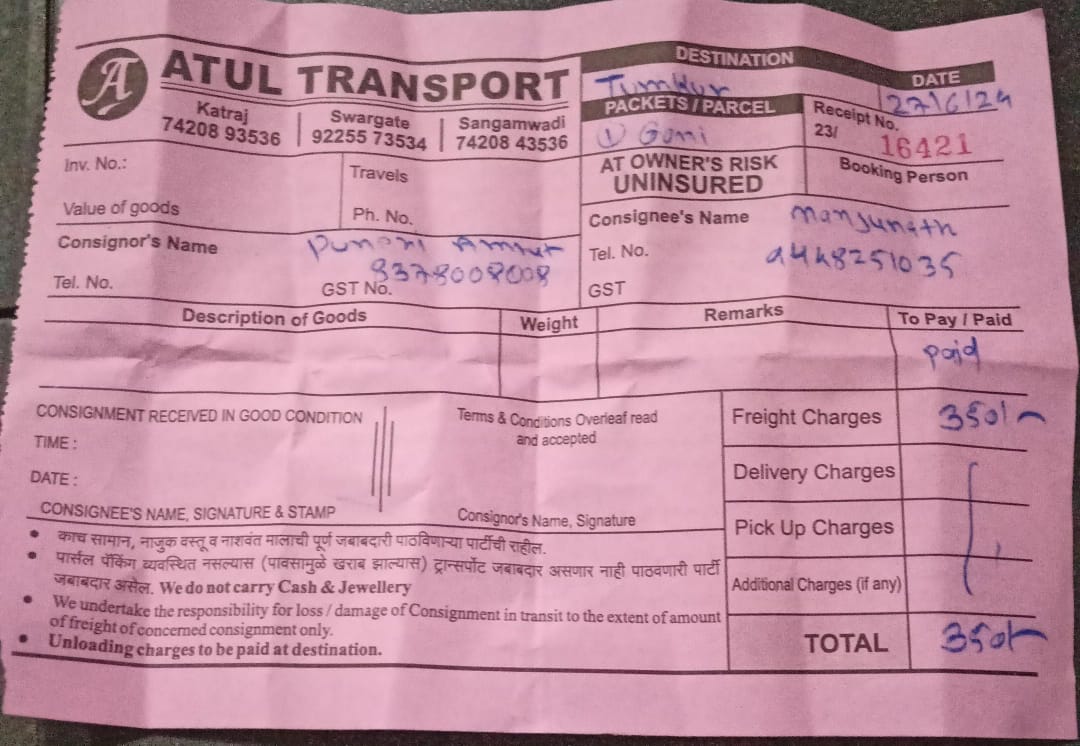 A ATUL TRANSPORT
Katraj 74208 93536 | Swargate 92255 73534 | Sangamwadi 74208 43536
DESTINATION
Tumkur
DATE
27/6/24
PACKETS / PARCEL
① Goni
Receipt No.
23/ 16421
AT OWNER'S RISK
UNINSURED
Booking Person
Inv. No.:
Travels
Value of goods
Ph. No.
Consignor's Name Puneri Amrut
8378008008
Tel. No. GST No.
Consignee's Name Manjunath
Tel. No. 9448251035
GST
Description of Goods Weight Remarks To Pay / Paid
paid
CONSIGNMENT RECEIVED IN GOOD CONDITION
TIME :
DATE :
CONSIGNEE'S NAME, SIGNATURE & STAMP
Terms & Conditions Overleaf read
and accepted
Consignor's Name, Signature
Freight Charges 350/-
Delivery Charges
Pick Up Charges
Additional Charges (if any)
TOTAL 350/-
• काच सामान, नाजुक वस्तू व नाशवंत मालाची पूर्ण जबाबदारी पाठविणाऱ्या पार्टीची राहील.
• पार्सल पॅकिंग व्यवस्थित नसल्यास (पावसामुळे खराब झाल्यास) ट्रान्सपोर्ट जबाबदार असणार नाही पाठवणारी पार्टी
जबाबदार असेल. We do not carry Cash & Jewellery
• We undertake the responsibility for loss / damage of Consignment in transit to the extent of amount
of freight of concerned consignment only.
• Unloading charges to be paid at destination.